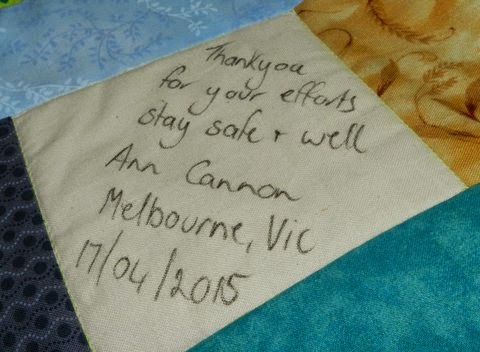 Thankyou
for your efforts
stay safe + well
Ann Cannon
Melbourne, Vic
17/04/2015